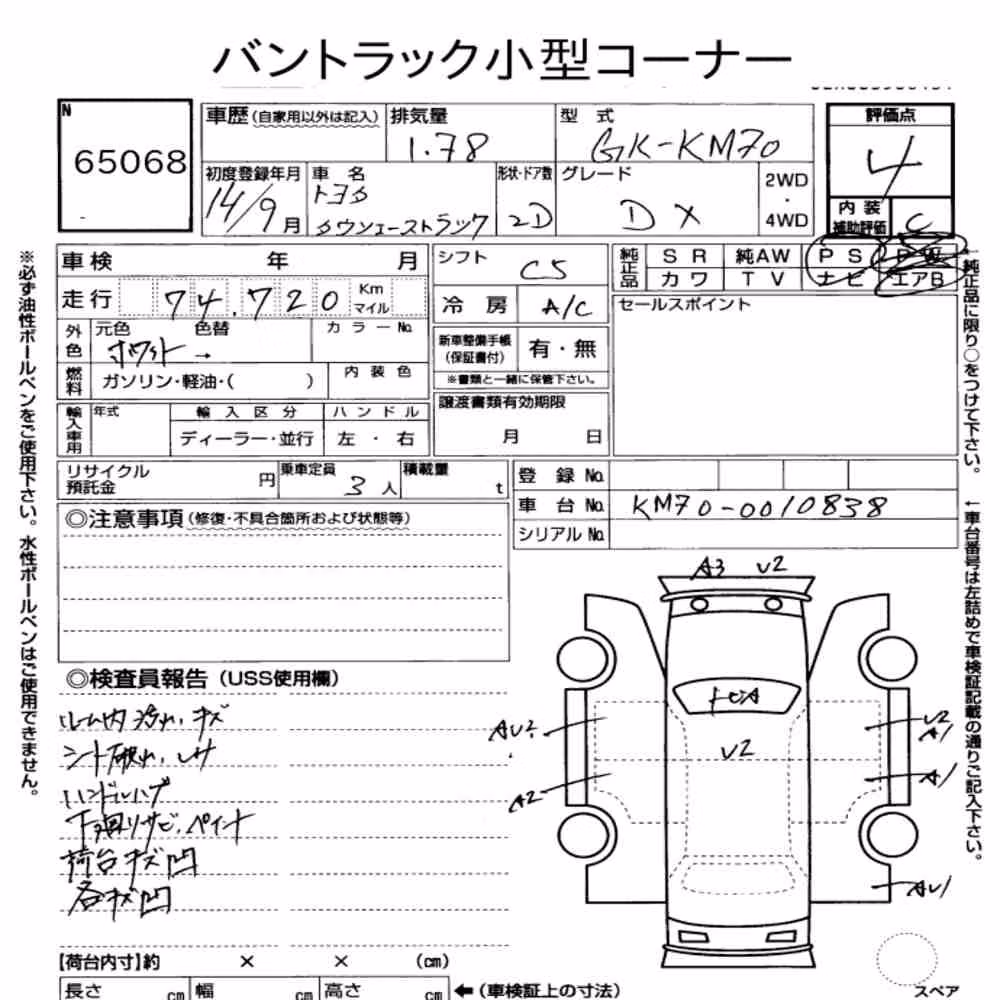 バントラック小型コーナー
N
65068
車歴 (自家用以外は記入)
排気量
1.78
型 式
GK-KM70
評価点
4
初度登録年月
14/9月
車 名
トヨタ
タウンエーストラック
形状・ドア数
2D
グレード
DX
2WD
・
4WD
内 装
補助評価
C
車検 年 月
走行 74.720 Km マイル
外色
元色
ホワイト
色替
→
カラーNo.
燃料
ガソリン・軽油・( )
内 装 色
輸入車用
年式
輸 入 区 分
ディーラー・並行
ハ ン ド ル
左 ・ 右
シフト
C5
冷 房
A/C
新車整備手帳
(保証書付)
有・無
※書類と一緒に保管下さい。
譲渡書類有効期限
月 日
純正品
S R
純AW
P S
P W
カ ワ
T V
ナ ビ
エアB
セールスポイント
リサイクル
預託金
円
乗車定員
3人
積載量
t
登 録 No.
車 台 No.
KM70-0010838
シリアル No.
◎注意事項 (修復・不具合箇所および状態等)
◎検査員報告 (USS使用欄)
ルーム内汚れ、キズ
シート破れ、
下廻りサビ、ペイント
荷台キズ凹
各キズ凹
【荷台内寸】約 × × (cm)
長さ cm
幅 cm
高さ cm
←(車検証上の寸法)
A3
V2
V2
AV2
A2
V2
A1
A1
AV1
スペア
※必ず油性ボールペンをご使用下さい。水性ボールペンはご使用できません。
←純正品に限り○をつけて下さい。
←車台番号は左詰めで車検証記載の通りご記入下さい。